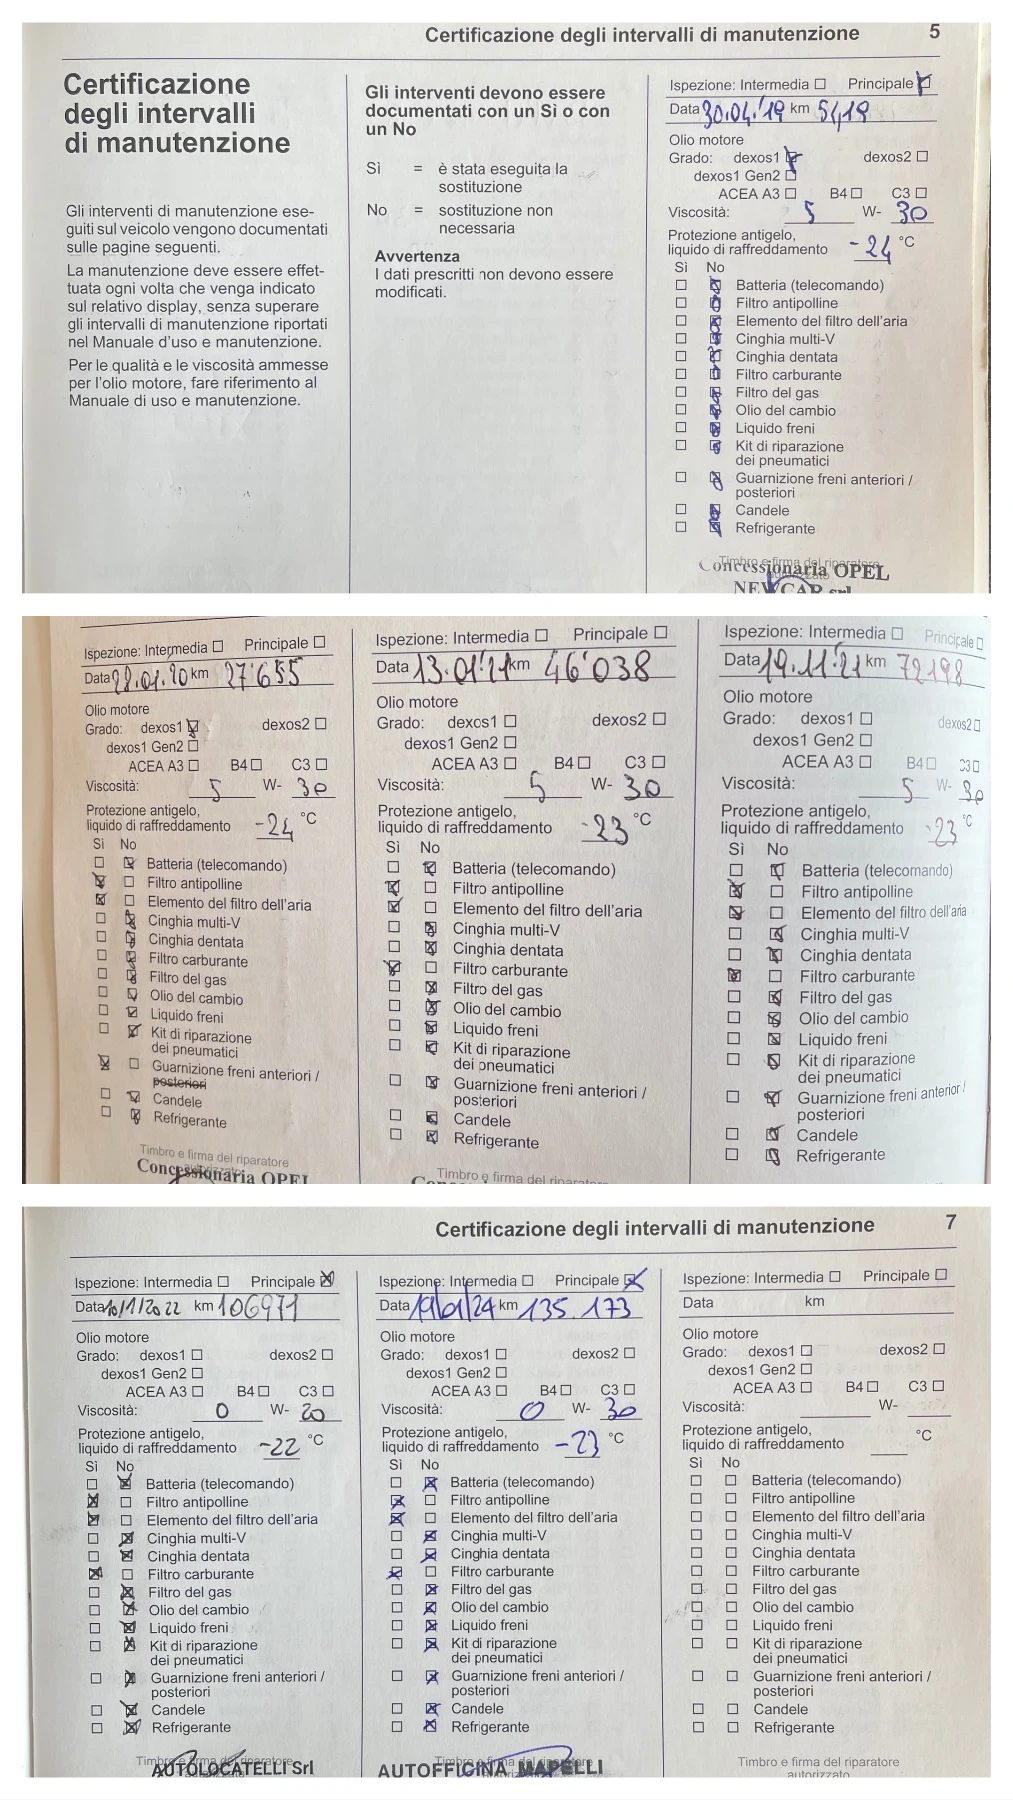 Certificazione degli intervalli di manutenzione 5
Certificazione
degli intervalli
di manutenzione
Gli interventi di manutenzione ese-
guiti sul veicolo vengono documentati
sulle pagine seguenti.
La manutenzione deve essere effet-
tuata ogni volta che venga indicato
sul relativo display, senza superare
gli intervalli di manutenzione riportati
nel Manuale d'uso e manutenzione.
Per le qualità e le viscosità ammesse
per l'olio motore, fare riferimento al
Manuale di uso e manutenzione.
Gli interventi devono essere
documentati con un Sì o con
un No
Sì = è stata eseguita la
sostituzione
No = sostituzione non
necessaria
Avvertenza
I dati prescritti non devono essere
modificati.
Ispezione: Intermedia Principale
Data 30.04.'19 km 5419
Olio motore
Grado: dexos1 dexos2
dexos1 Gen2
ACEA A3 B4 C3
Viscosità: 5 W- 30
Protezione antigelo,
liquido di raffreddamento -24 °C
Sì No
Batteria (telecomando)
Filtro antipolline
Elemento del filtro dell'aria
Cinghia multi-V
Cinghia dentata
Filtro carburante
Filtro del gas
Olio del cambio
Liquido freni
Kit di riparazione
dei pneumatici
Guarnizione freni anteriori /
posteriori
Candele
Refrigerante
Timbro e firma del riparatore
autorizzato
Concessionaria OPEL
NEW CAR srl
Ispezione: Intermedia Principale
Data 28.01.20 km 27'655
Olio motore
Grado: dexos1 dexos2
dexos1 Gen2
ACEA A3 B4 C3
Viscosità: 5 W- 30
Protezione antigelo,
liquido di raffreddamento -24 °C
Sì No
Batteria (telecomando)
Filtro antipolline
Elemento del filtro dell'aria
Cinghia multi-V
Cinghia dentata
Filtro carburante
Filtro del gas
Olio del cambio
Liquido freni
Kit di riparazione
dei pneumatici
Guarnizione freni anteriori /
posteriori
Candele
Refrigerante
Timbro e firma del riparatore
autorizzato
Concessionaria OPEL
Ispezione: Intermedia Principale
Data 13.01.'21 km 46'038
Olio motore
Grado: dexos1 dexos2
dexos1 Gen2
ACEA A3 B4 C3
Viscosità: 5 W- 30
Protezione antigelo,
liquido di raffreddamento -23 °C
Sì No
Batteria (telecomando)
Filtro antipolline
Elemento del filtro dell'aria
Cinghia multi-V
Cinghia dentata
Filtro carburante
Filtro del gas
Olio del cambio
Liquido freni
Kit di riparazione
dei pneumatici
Guarnizione freni anteriori /
posteriori
Candele
Refrigerante
Timbro e firma del riparatore
Ispezione: Intermedia Principale
Data 19.11.'21 km 72198
Olio motore
Grado: dexos1 dexos2
dexos1 Gen2
ACEA A3 B4 C3
Viscosità: 5 W- 30
Protezione antigelo,
liquido di raffreddamento -23 °C
Sì No
Batteria (telecomando)
Filtro antipolline
Elemento del filtro dell'aria
Cinghia multi-V
Cinghia dentata
Filtro carburante
Filtro del gas
Olio del cambio
Liquido freni
Kit di riparazione
dei pneumatici
Guarnizione freni anteriori /
posteriori
Candele
Refrigerante
Certificazione degli intervalli di manutenzione 7
Ispezione: Intermedia Principale
Data 10/1/2022 km 106971
Olio motore
Grado: dexos1 dexos2
dexos1 Gen2
ACEA A3 B4 C3
Viscosità: 0 W- 20
Protezione antigelo,
liquido di raffreddamento -22 °C
Sì No
Batteria (telecomando)
Filtro antipolline
Elemento del filtro dell'aria
Cinghia multi-V
Cinghia dentata
Filtro carburante
Filtro del gas
Olio del cambio
Liquido freni
Kit di riparazione
dei pneumatici
Guarnizione freni anteriori /
posteriori
Candele
Refrigerante
Timbro e firma del riparatore
autorizzato
AUTOLOCATELLI Srl
Ispezione: Intermedia Principale
Data 19/01/24 km 135.173
Olio motore
Grado: dexos1 dexos2
dexos1 Gen2
ACEA A3 B4 C3
Viscosità: 0 W- 30
Protezione antigelo,
liquido di raffreddamento -23 °C
Sì No
Batteria (telecomando)
Filtro antipolline
Elemento del filtro dell'aria
Cinghia multi-V
Cinghia dentata
Filtro carburante
Filtro del gas
Olio del cambio
Liquido freni
Kit di riparazione
dei pneumatici
Guarnizione freni anteriori /
posteriori
Candele
Refrigerante
Timbro e firma del riparatore
autorizzato
AUTOFFICINA MAPELLI
Ispezione: Intermedia Principale
Data km
Olio motore
Grado: dexos1 dexos2
dexos1 Gen2
ACEA A3 B4 C3
Viscosità: W-
Protezione antigelo,
liquido di raffreddamento °C
Sì No
Batteria (telecomando)
Filtro antipolline
Elemento del filtro dell'aria
Cinghia multi-V
Cinghia dentata
Filtro carburante
Filtro del gas
Olio del cambio
Liquido freni
Kit di riparazione
dei pneumatici
Guarnizione freni anteriori /
posteriori
Candele
Refrigerante
Timbro e firma del riparatore
autorizzato